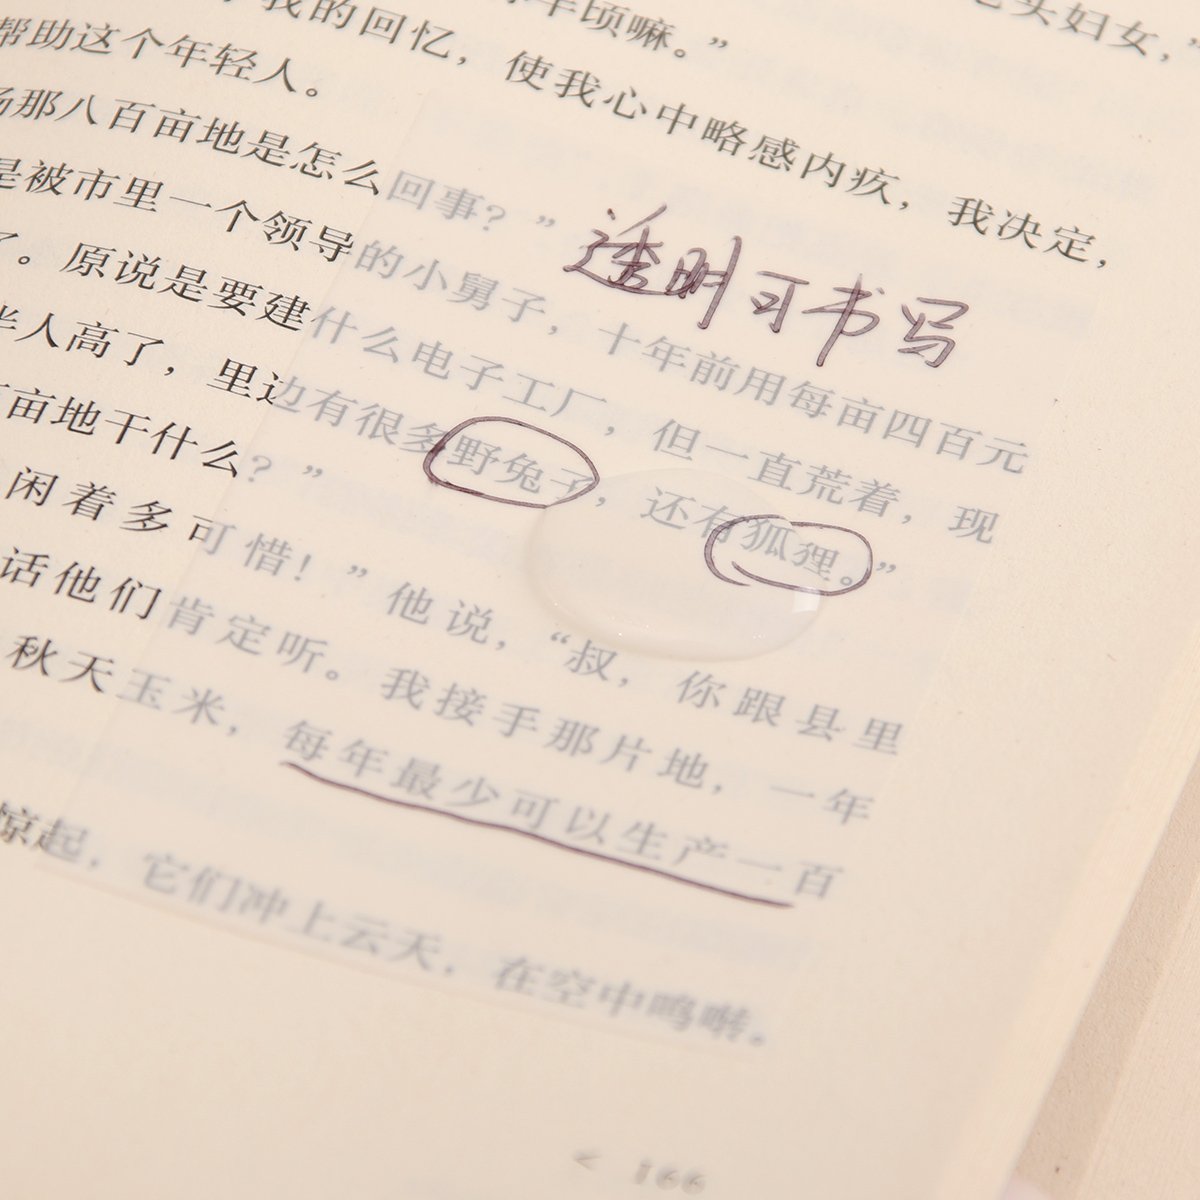 年顷嘛。”
老头妇女，”
我的回忆，使我心中略感内疚，我决定，
帮助这个年轻人。
场那八百亩地是怎么回事？”
透明可书写
是被市里一个领导的小舅子，十年前用每亩四百元
了。原说是要建什么电子工厂，但一直荒着，现
半人高了，里边有很多野兔子，还有狐狸。”
亩地干什么？”
闲着多可惜！”他说，“叔，你跟县里
话他们肯定听。我接手那片地，一年
秋天玉米，每年最少可以生产一百
惊起，它们冲上云天，在空中鸣啭。
< 166